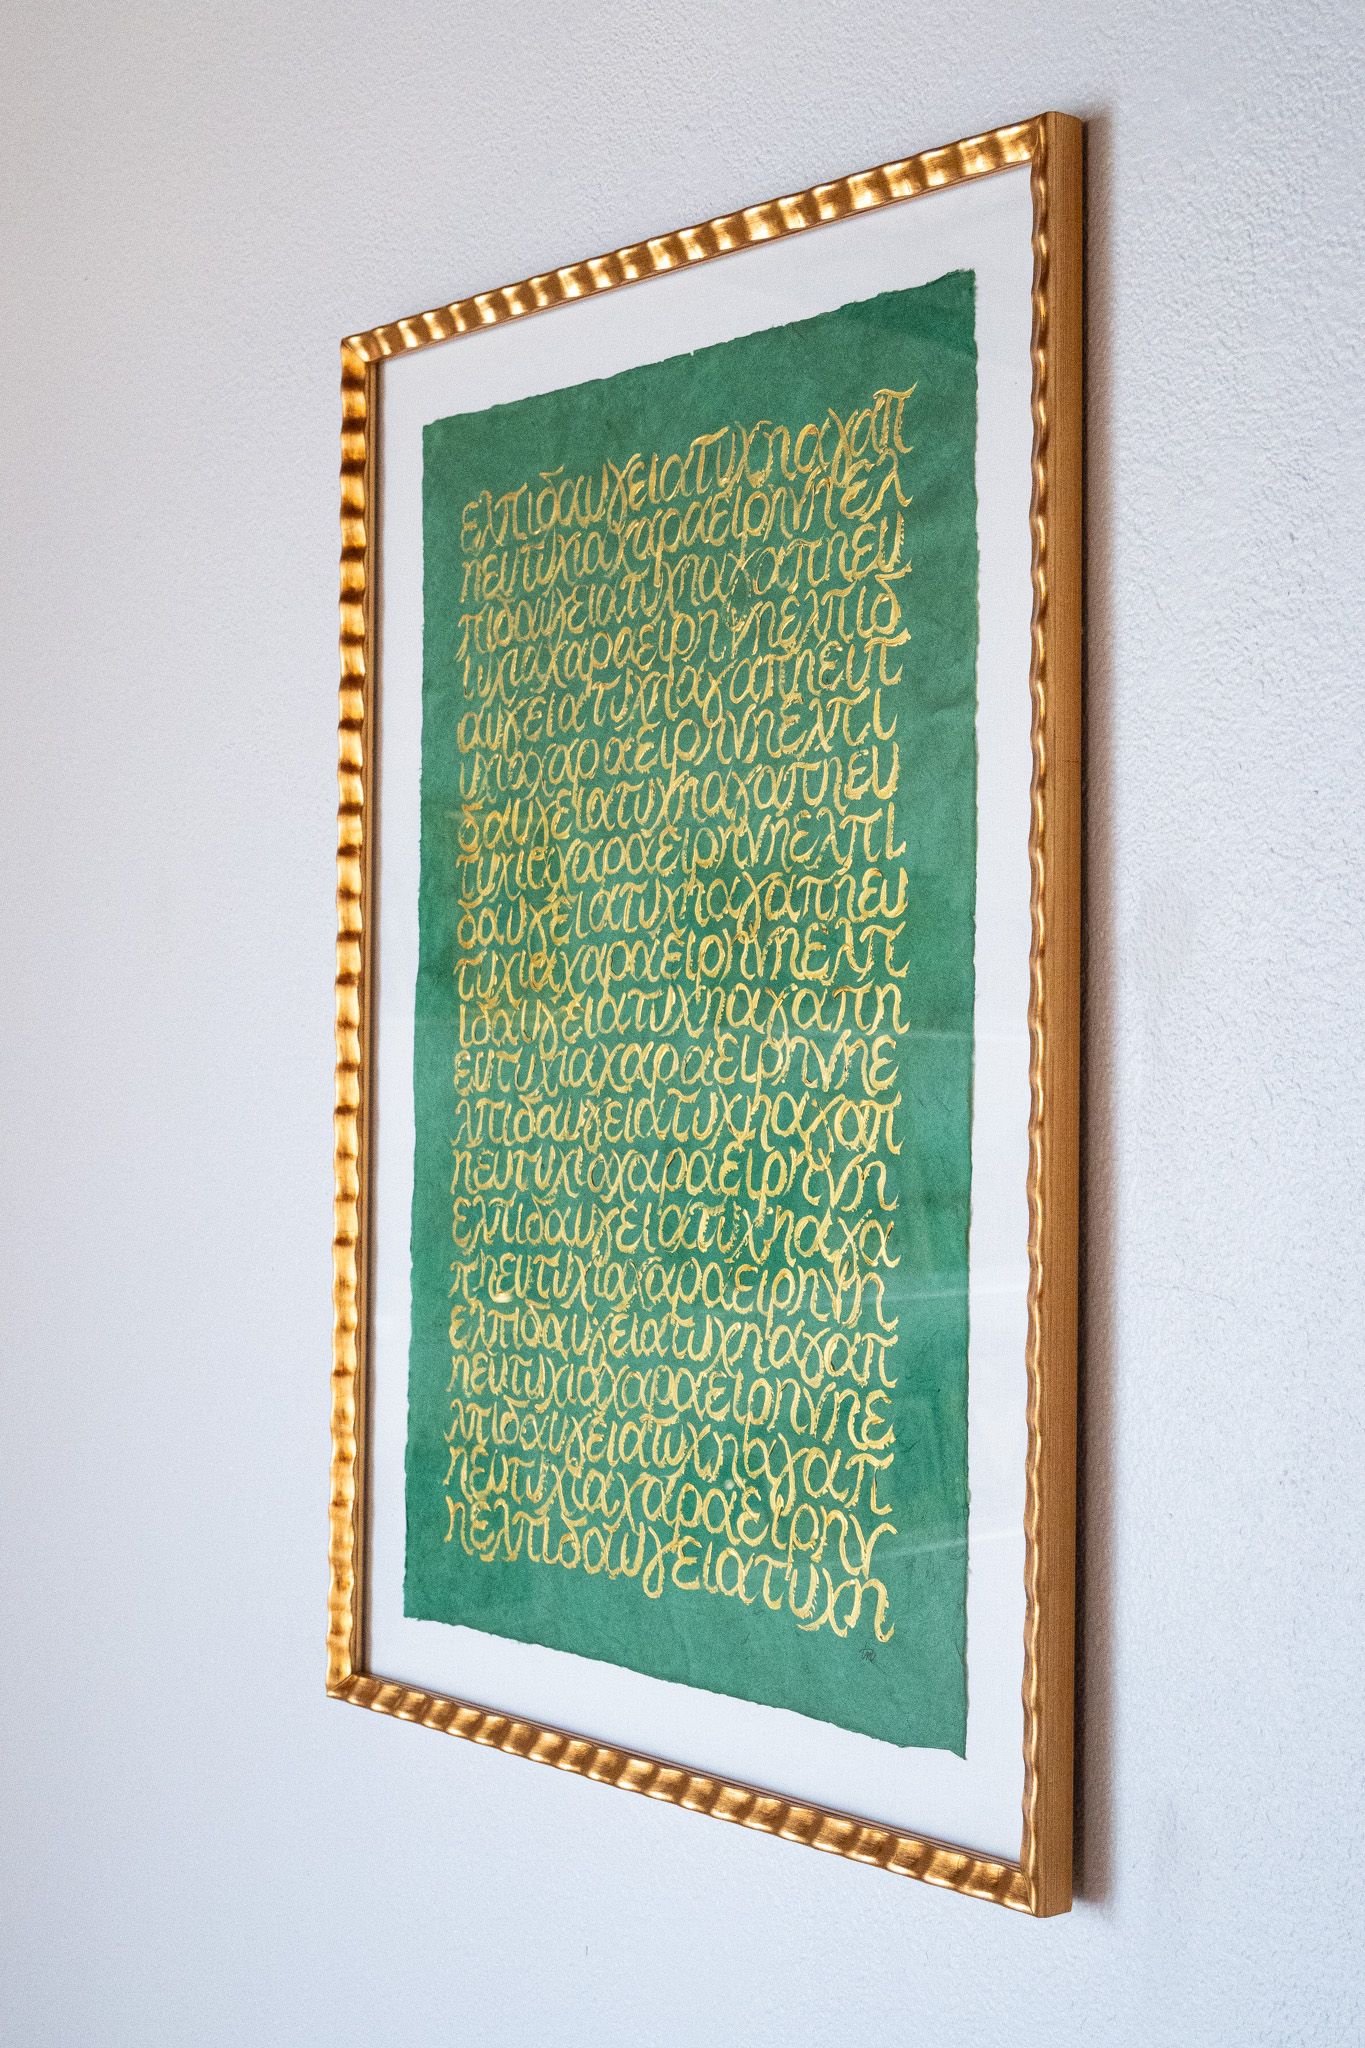 ελπιδαυγειατυχηαγαπ
ηευτυχιαχαραειρηνηελ
πιδαυγειατυχηαγαπηευ
τυχιαχαραειρηνηελπιδ
αυγειατυχηαγαπηευτ
υχιαχαραειρηνηελπι
δαυγειατυχηαγαπηευ
τυχιαχαραειρηνηελπι
δαυγειατυχηαγαπηευ
τυχιαχαραειρηνηελπ
ιδαυγειατυχηαγαπη
ευτυχιαχαραειρηνηε
λπιδαυγειατυχηαγαπ
ηευτυχιαχαραειρηνη
ελπιδαυγειατυχηαγα
πηευτυχιαχαραειρηνη
ελπιδαυγειατυχηαγαπ
ηευτυχιαχαραειρηνηε
λπιδαυγειατυχηαγαπ
ηευτυχιαχαραειρην
ηελπιδαυγειατυχη